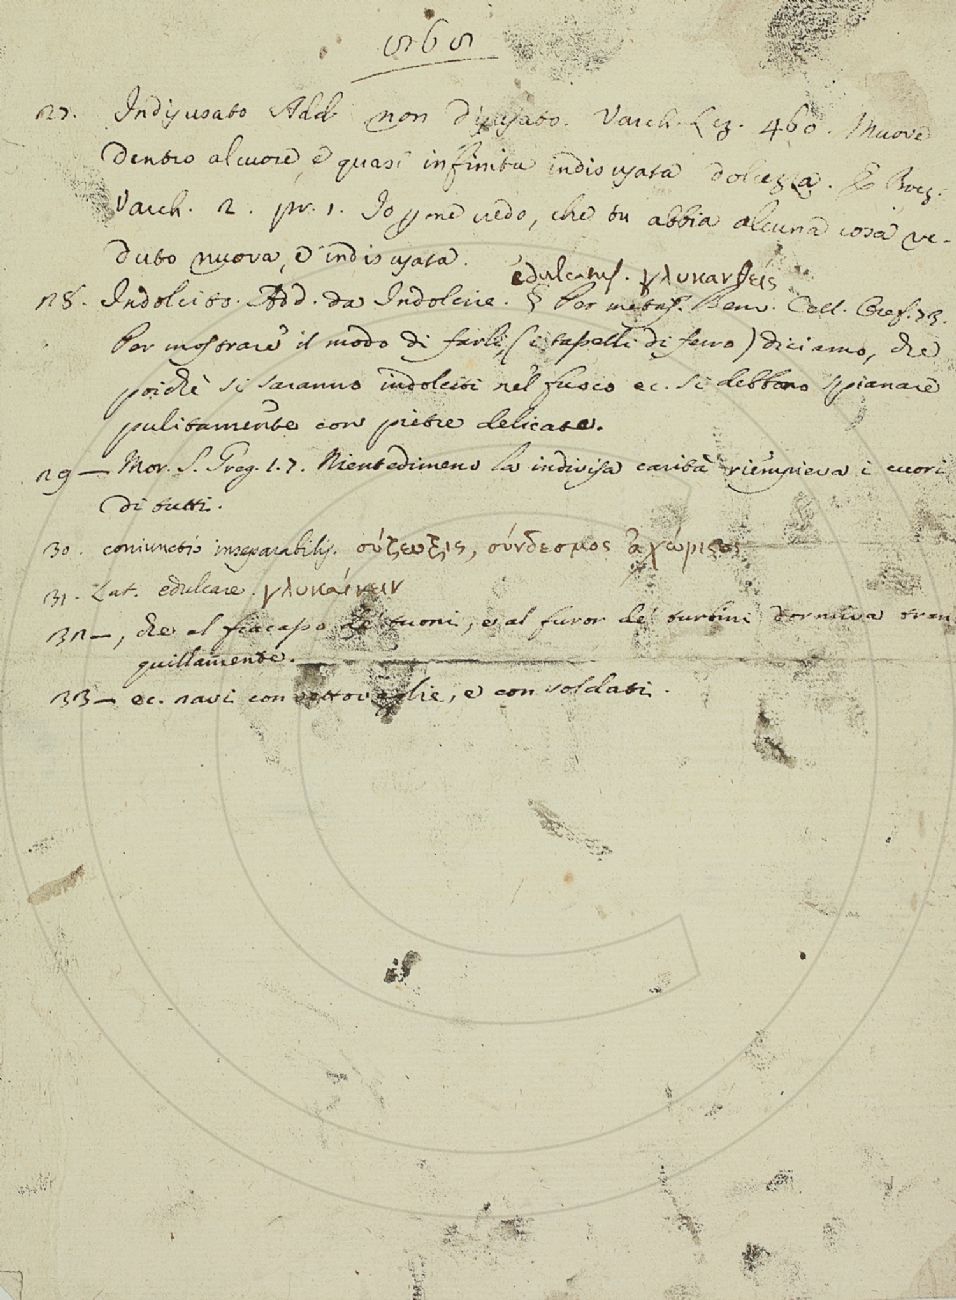 27. Indisusato Add. non disusato. Varch. Lez. 460. Muove
dentro al cuore, e quasi infinita indisusata dolcezza. E Boez.
Varch. 2. pr. 1. Io penso vedo, che tu abbia alcuna cosa ve-
duto nuova, e indisusata.
edulcatus. γλυκανθείς
28. Indolcito. Add. da Indolcire. § Per metaf. Benv. Cell. Oref. 73.
Per mostrare il modo di farli (i tasselli di ferro) diciamo, che
poichè si saranno indolciti nel fuoco ec. si debbono spianare
pulitamente con pietre delicate.
29 — Mor. S. Greg. 1. 7. Nientedimeno la indivisa carità riempieva i cuori
di tutti.
30. coniunctio inseparabilis. σύζευξις, σύνδεσμος ἀχώριστος
31. Lat. edulcare. γλυκαίνειν
32 —, che al fracasso de' tuoni, e al furor de' turbini dormiva tran
quillamente.
33 — ec. navi con vettovaglie, e con soldati.